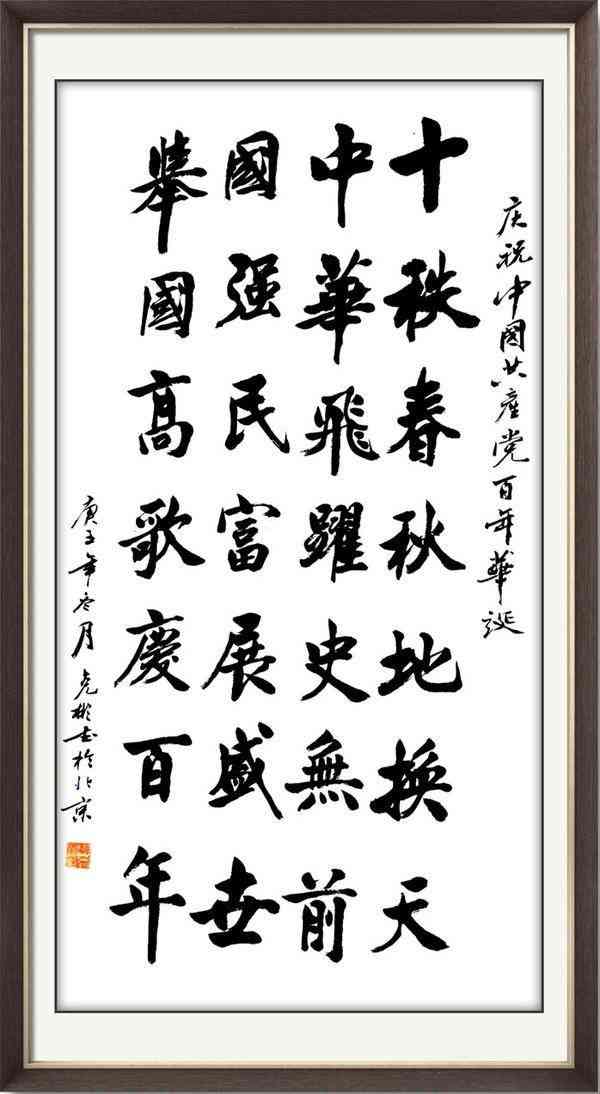 庆祝中國共產党百年華诞
十秩春秋地換天
中華飛躍史無前
國强民富展盛世
舉國髙歌慶百年
庚子年冬月克彬书於北京